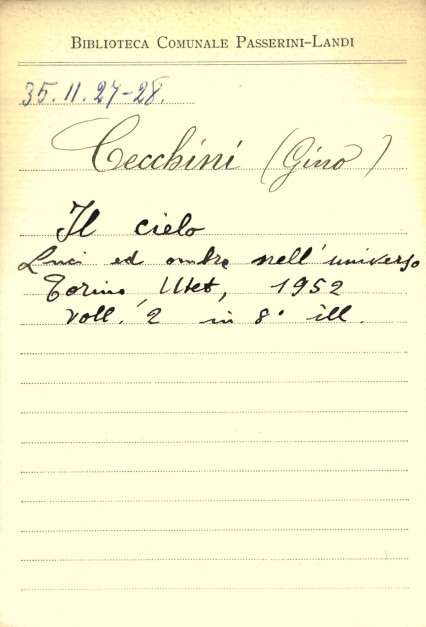 BIBLIOTECA COMUNALE PASSERINI-LANDI
35.II.27-28.
Cecchini (Gino)
Il cielo
Luci ed ombre nell'universo
Torino, Utet, 1952
voll. 2 in 8° ill.